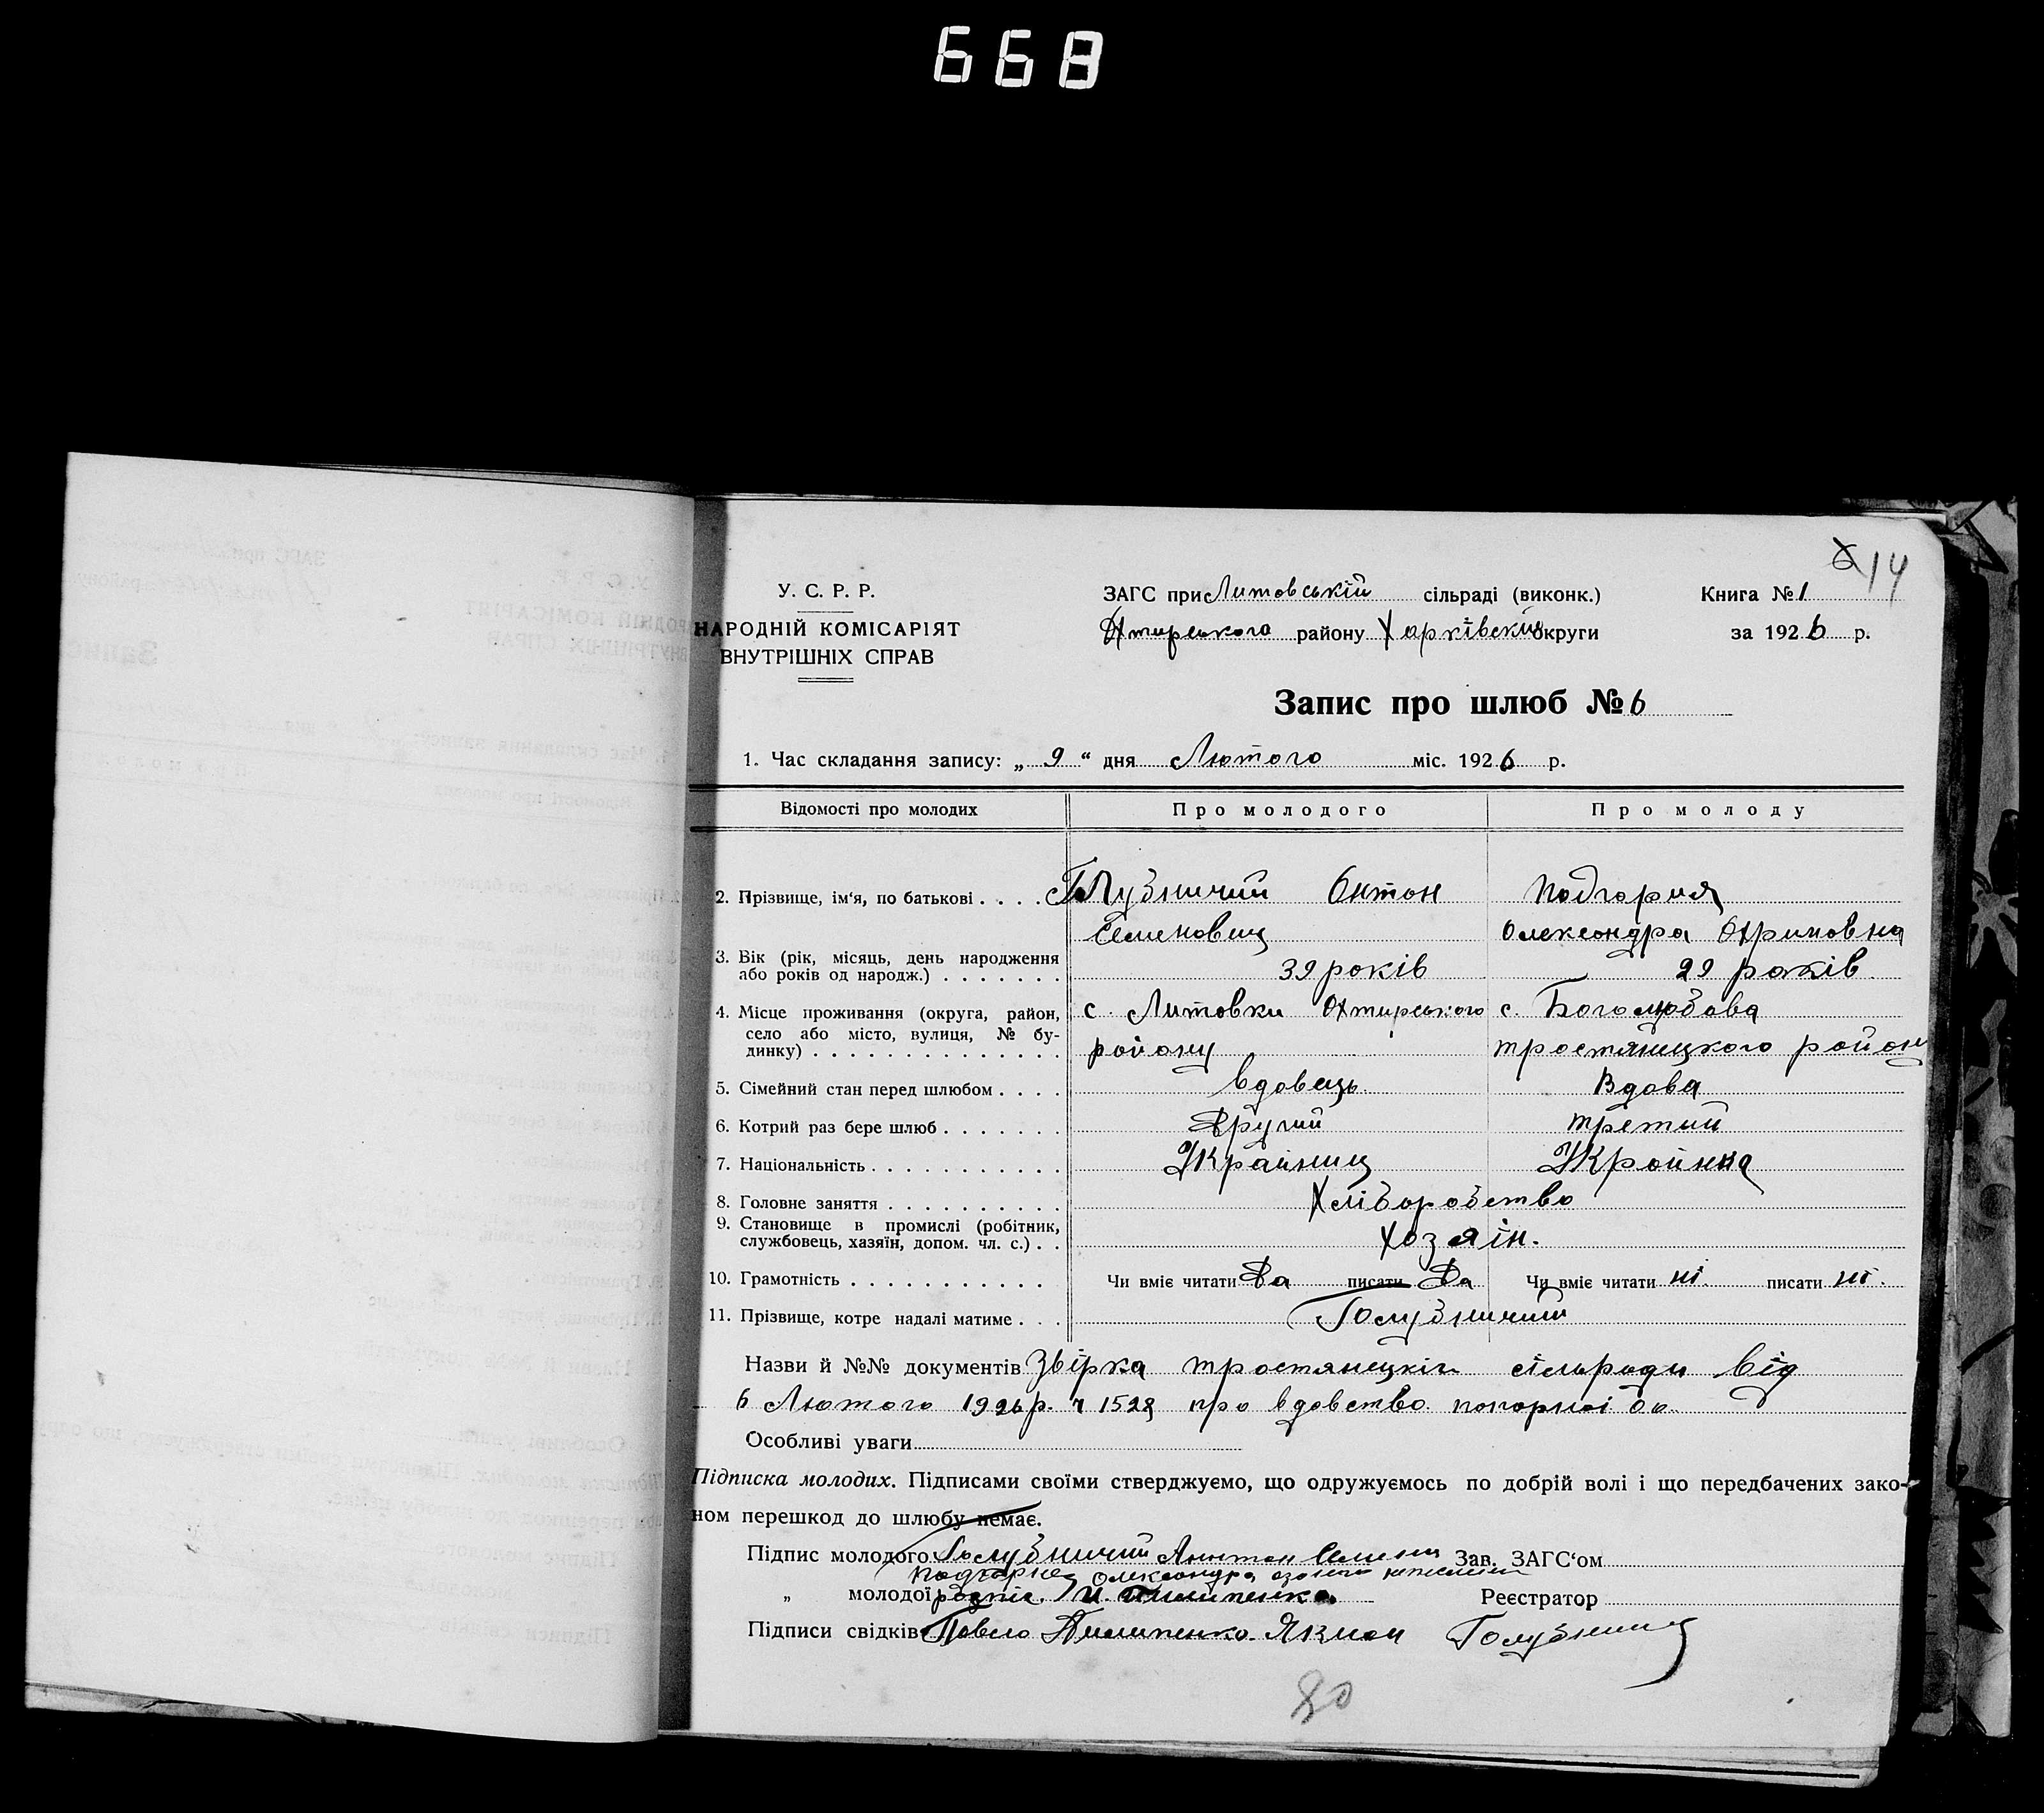 668
14
У. С. Р. Р.
НАРОДНІЙ КОМІСАРІЯТ
ВНУТРІШНІХ СПРАВ
ЗАГС при Литовській сільраді (виконк.) Книга № 1
Охтирського району Харківськ округи за 1926 р.
Запис про шлюб № 6
1. Час складання запису: „ 9 “ дня Лютого міс. 1926 р.
Відомості про молодих Про молодого Про молоду
2. Прізвище, ім‘я, по батькові . . . . Голубничий Онтон Подгорня
Семенович Олександра Охримовна
3. Вік (рік, місяць, день народження
або років од народж.) . . . . . . . 39 років 29 років
4. Місце проживання (округа, район, с. Литовки Охтирського с. Боголюбова
село або місто, вулиця, № бу-
динку) . . . . . . . . . . . . . . району тростянецкого район
5. Сімейний стан перед шлюбом . . . . вдовець Вдова
6. Котрий раз бере шлюб . . . . . . . Другий третий
7. Національність . . . . . . . . . . . Украйнець Укройнка
8. Головне заняття . . . . . . . . . . Хліборобство
9. Становище в промислі (робітник,
службовець, хазяїн, допом. чл. с.) . . Хозяїн.
10. Грамотність . . . . . . . . . . . Чи вміє читати Да писати Да Чи вміє читати ні. писати ні.
11. Прізвище, котре надалі матиме . . . Голубничий
Назви й №№ документів Звірка тростянецкі сільради від
6 Лютого 1926 р. ч 1528 про вдовство
Особливі уваги
Підписка молодих. Підписами своїми стверджуємо, що одружуємось по добрій волі і що передбачених зако-
ном перешкод до шлюбу немає.
Підпис молодого Голубничий Антон Семен Зав. ЗАГС‘ом
Олександра
„ молодої Пилипенко Реєстратор
Підписи свідків Павло Пилипенко. Яким Голубнич
80